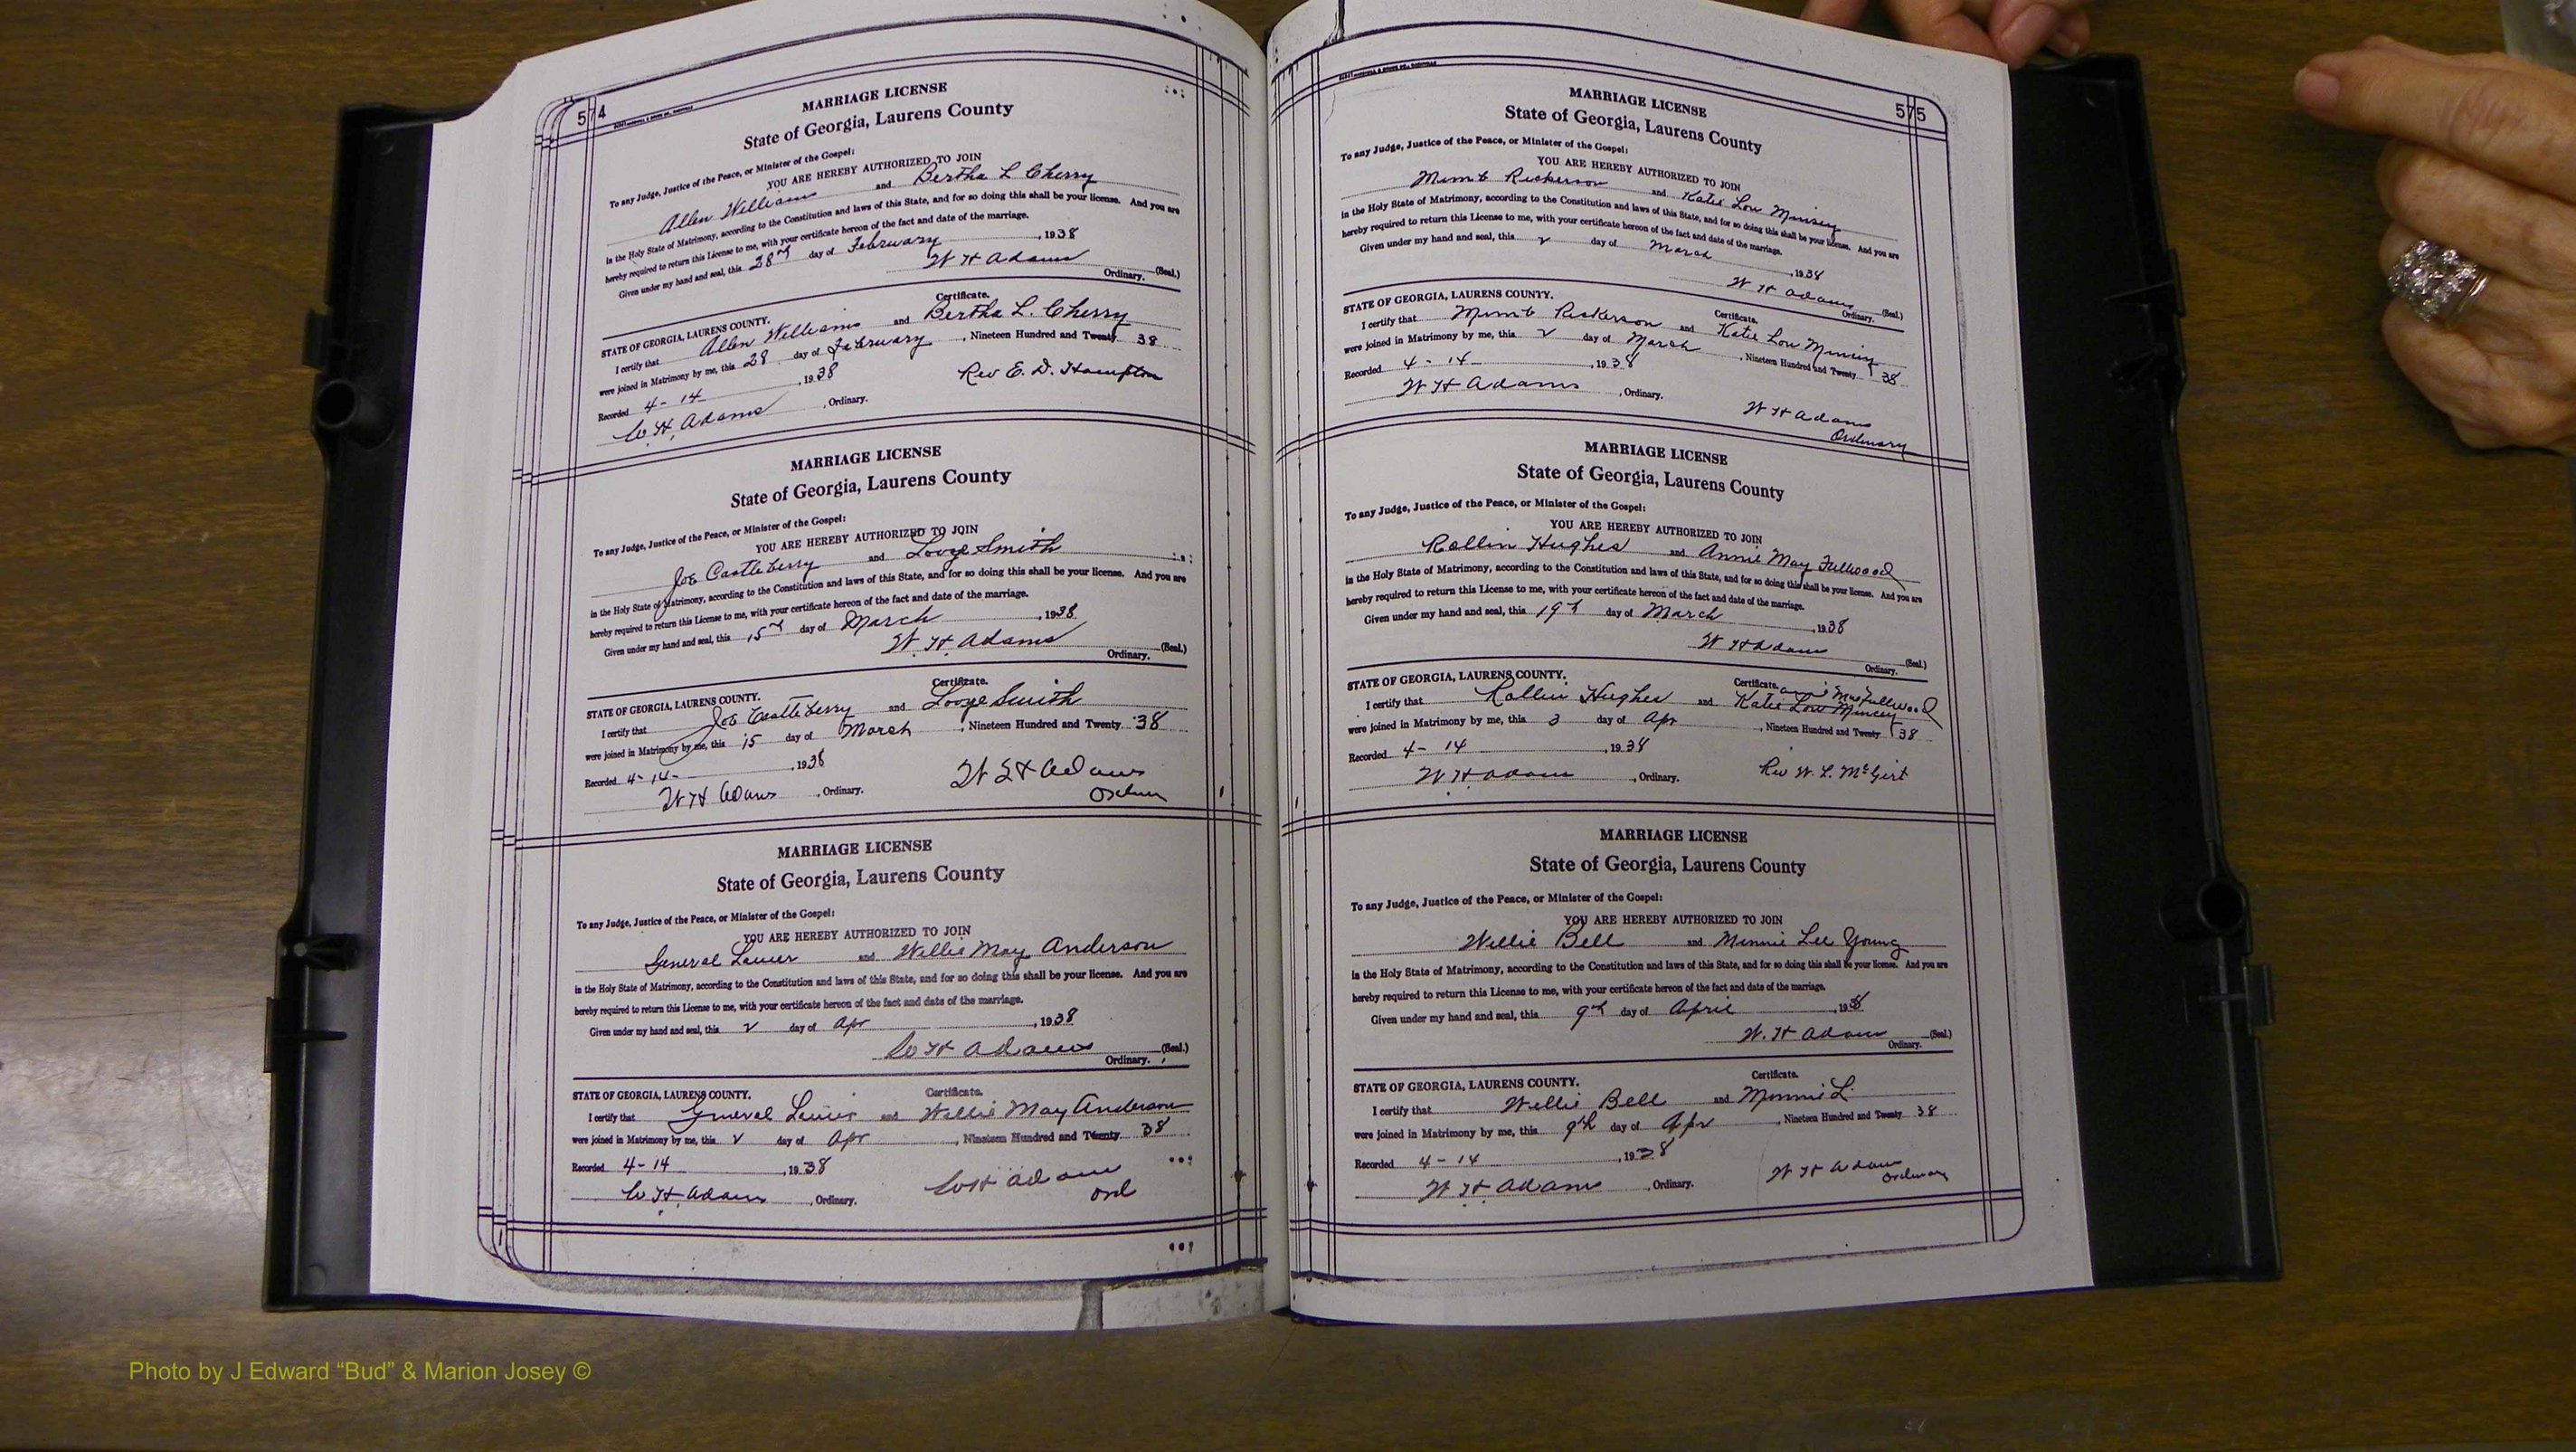 574
MARRIAGE LICENSE
State of Georgia, Laurens County
To any Judge, Justice of the Peace, or Minister of the Gospel:
YOU ARE HEREBY AUTHORIZED TO JOIN
Allen William and Bertha L Cherry
in the Holy State of Matrimony, according to the Constitution and laws of this State, and for so doing this shall be your license. And you are
hereby required to return this License to me, with your certificate hereon of the fact and date of the marriage.
Given under my hand and seal, this 28th day of February, 1938
W H Adams (Seal.)
Ordinary.
Certificate.
STATE OF GEORGIA, LAURENS COUNTY.
I certify that Allen Williams and Bertha L. Cherry
were joined in Matrimony by me, this 28 day of February, Nineteen Hundred and Twenty 38
Recorded 4-14, 1938
Rev E. D. Hampton
W. H. Adams, Ordinary.
MARRIAGE LICENSE
State of Georgia, Laurens County
To any Judge, Justice of the Peace, or Minister of the Gospel:
YOU ARE HEREBY AUTHORIZED TO JOIN
Joe Castleberry and Smith
in the Holy State of Matrimony, according to the Constitution and laws of this State, and for so doing this shall be your license. And you are
hereby required to return this License to me, with your certificate hereon of the fact and date of the marriage.
Given under my hand and seal, this 15th day of March, 1938
W. H. Adams (Seal.)
Ordinary.
Certificate.
STATE OF GEORGIA, LAURENS COUNTY.
I certify that Joe Castleberry and Smith
were joined in Matrimony by me, this 15 day of March, Nineteen Hundred and Twenty 38
Recorded 4-14-, 1938
W H Adams
W H Adams, Ordinary.
MARRIAGE LICENSE
State of Georgia, Laurens County
To any Judge, Justice of the Peace, or Minister of the Gospel:
YOU ARE HEREBY AUTHORIZED TO JOIN
General and Willie May Anderson
in the Holy State of Matrimony, according to the Constitution and laws of this State, and for so doing this shall be your license. And you are
hereby required to return this License to me, with your certificate hereon of the fact and date of the marriage.
Given under my hand and seal, this 2 day of Apr, 1938
W H Adams (Seal.)
Ordinary.
Certificate.
STATE OF GEORGIA, LAURENS COUNTY.
I certify that General and Willie May Anderson
were joined in Matrimony by me, this 2 day of Apr, Nineteen Hundred and Twenty 38
Recorded 4-14, 1938
W H Adams
Ord
W H Adams, Ordinary.
575
MARRIAGE LICENSE
State of Georgia, Laurens County
To any Judge, Justice of the Peace, or Minister of the Gospel:
YOU ARE HEREBY AUTHORIZED TO JOIN
Rickerson and Katie Lou Mincey
in the Holy State of Matrimony, according to the Constitution and laws of this State, and for so doing this shall be your license. And you are
hereby required to return this License to me, with your certificate hereon of the fact and date of the marriage.
Given under my hand and seal, this 2 day of March, 1938
W H Adams (Seal.)
Ordinary.
Certificate.
STATE OF GEORGIA, LAURENS COUNTY.
I certify that Rickerson and Katie Lou Mincey
were joined in Matrimony by me, this 2 day of March, Nineteen Hundred and Twenty 38
Recorded 4-14, 1938
W H Adams, Ordinary.
W H Adams
Ordinary
MARRIAGE LICENSE
State of Georgia, Laurens County
To any Judge, Justice of the Peace, or Minister of the Gospel:
YOU ARE HEREBY AUTHORIZED TO JOIN
Rollin Hughes and Annie May Fullwood
in the Holy State of Matrimony, according to the Constitution and laws of this State, and for so doing this shall be your license. And you are
hereby required to return this License to me, with your certificate hereon of the fact and date of the marriage.
Given under my hand and seal, this 19th day of March, 1938
W H Adams (Seal.)
Ordinary.
Certificate.
Annie Mae Fullwood
STATE OF GEORGIA, LAURENS COUNTY.
I certify that Rollin Hughes and Katie Lou Mincey
were joined in Matrimony by me, this 3 day of Apr, Nineteen Hundred and Twenty 38
Recorded 4-14, 1938
Rev W. L. McGirt
W H Adams, Ordinary.
MARRIAGE LICENSE
State of Georgia, Laurens County
To any Judge, Justice of the Peace, or Minister of the Gospel:
YOU ARE HEREBY AUTHORIZED TO JOIN
Willie Bell and Minnie Lee Young
in the Holy State of Matrimony, according to the Constitution and laws of this State, and for so doing this shall be your license. And you are
hereby required to return this License to me, with your certificate hereon of the fact and date of the marriage.
Given under my hand and seal, this 9th day of April, 1938
W. H Adams (Seal.)
Ordinary.
Certificate.
STATE OF GEORGIA, LAURENS COUNTY.
I certify that Willie Bell and Minnie L.
were joined in Matrimony by me, this 9th day of Apr, Nineteen Hundred and Twenty 38
Recorded 4-14, 1938
W H Adams
Ordinary
W. H. Adams, Ordinary.
Photo by J Edward “Bud” & Marion Josey ©